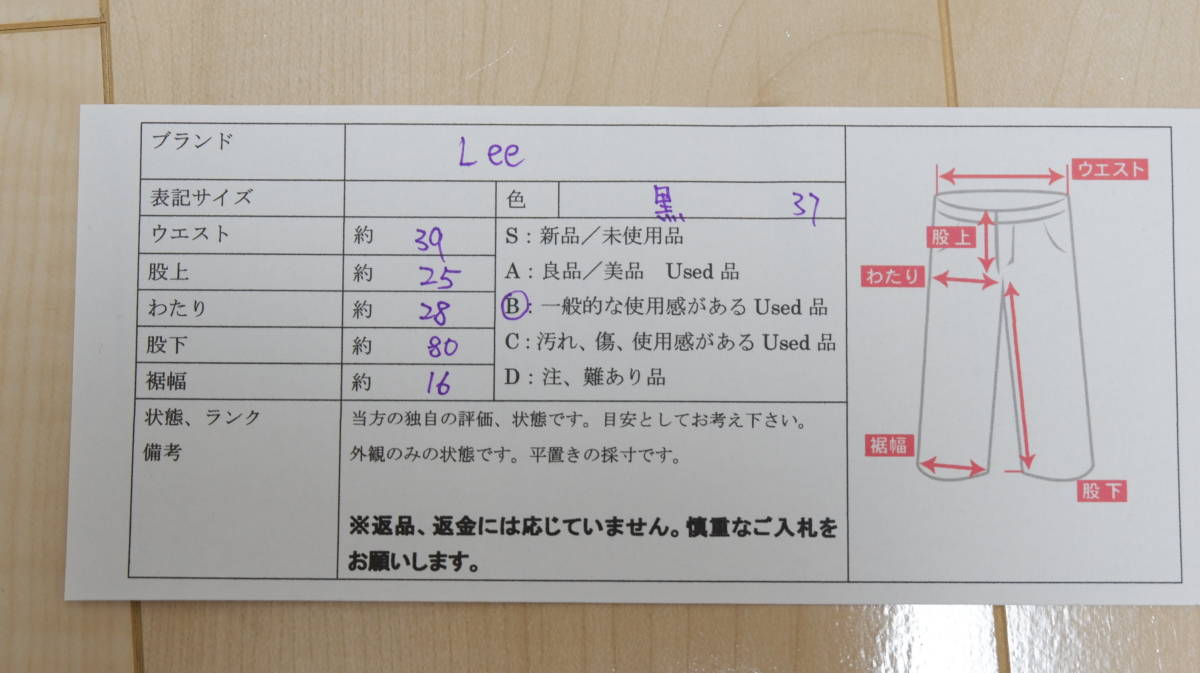 ブランド Lee
表記サイズ 色 黒 37
ウエスト 約 39
股上 約 25
わたり 約 28
股下 約 80
裾幅 約 16
S：新品／未使用品
A：良品／美品 Used 品
B：一般的な使用感がある Used 品
C：汚れ、傷、使用感がある Used 品
D：注、難あり品
状態、ランク
備考
当方の独自の評価、状態です。目安としてお考え下さい。
外観のみの状態です。平置きの採寸です。
※返品、返金には応じていません。慎重なご入札を
お願いします。
ウエスト
股上
わたり
裾幅
股下